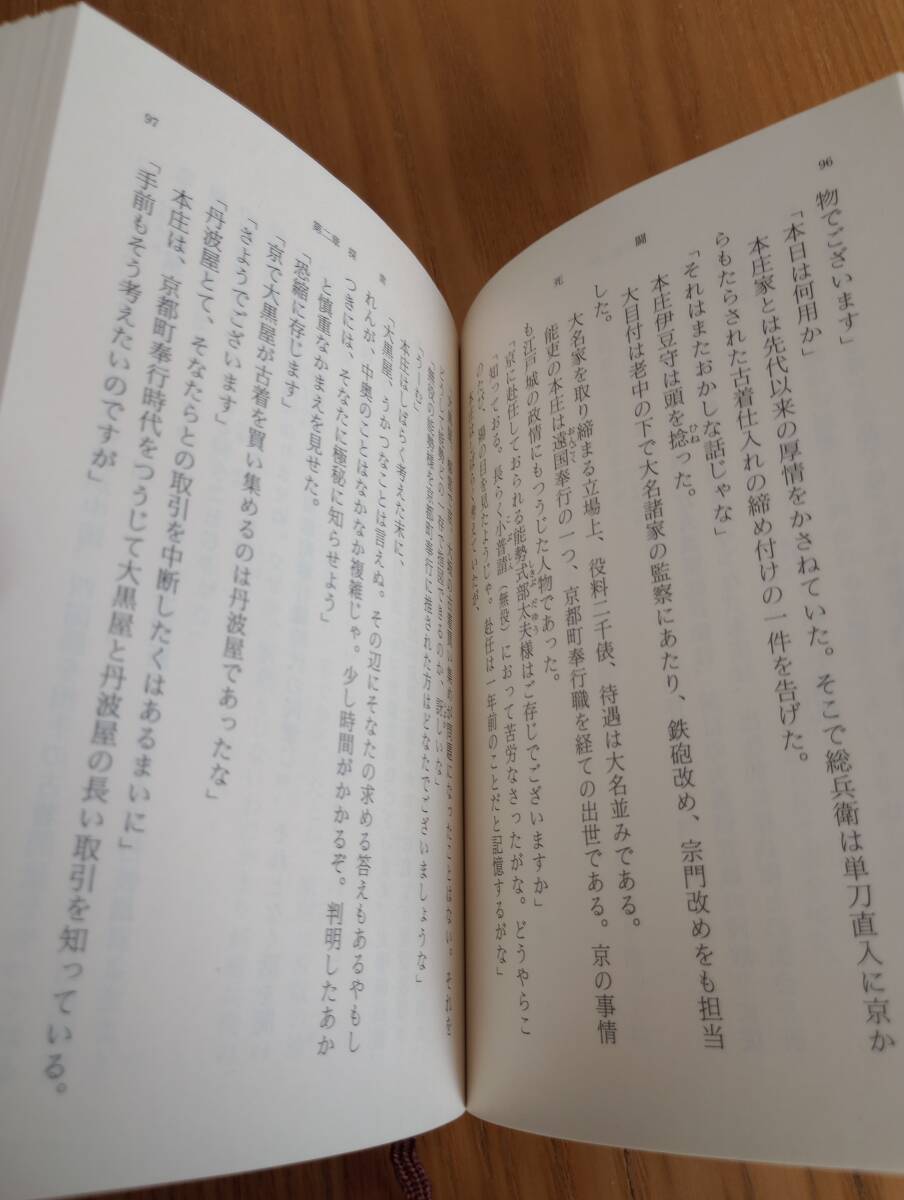 96
死闘
物でございます」
「本日は何用か」
本庄家とは先代以来の厚情をかさねていた。そこで総兵衛は単刀直入に京か
らもたらされた古着仕入れの締め付けの一件を告げた。
「それはまたおかしな話じゃな」
本庄伊豆守は頭を捻った。
大目付は老中の下で大名諸家の監察にあたり、鉄砲改め、宗門改めをも担当
した。
大名家を取り締まる立場上、役料二千俵、待遇は大名並みである。
能吏の本庄は遠国奉行の一つ、京都町奉行職を経ての出世である。京の事情
も江戸城の政情にもつうじた人物であった。
「京に赴任しておられる能勢式部太夫様はご存じでございますか」
「知っておる。長らく小普請（無役）におって苦労なさったがな。どうやらこ
のたび、陽の目を見たようじゃ。赴任は一年前のことだと記憶するがな」
97
第二章 探索
「うーむ」
「無役の能勢様を京都町奉行に推された方はどなたでございましょうな」
本庄はしばらく考えた末に、
「大黒屋、うかつなことは言えぬ。その辺にそなたの求める答えもあるやもし
れんが、中奥のことはなかなか複雑じゃ。少し時間がかかるぞ。判明したあか
つきには、そなたに極秘に知らせよう」
と慎重なかまえを見せた。
「恐縮に存じます」
「京で大黒屋が古着を買い集めるのは丹波屋であったな」
「さようでございます」
「丹波屋とて、そなたらとの取引を中断したくはあるまいに」
本庄は、京都町奉行時代をつうじて大黒屋と丹波屋の長い取引を知っている。
「手前もそう考えたいのですが」